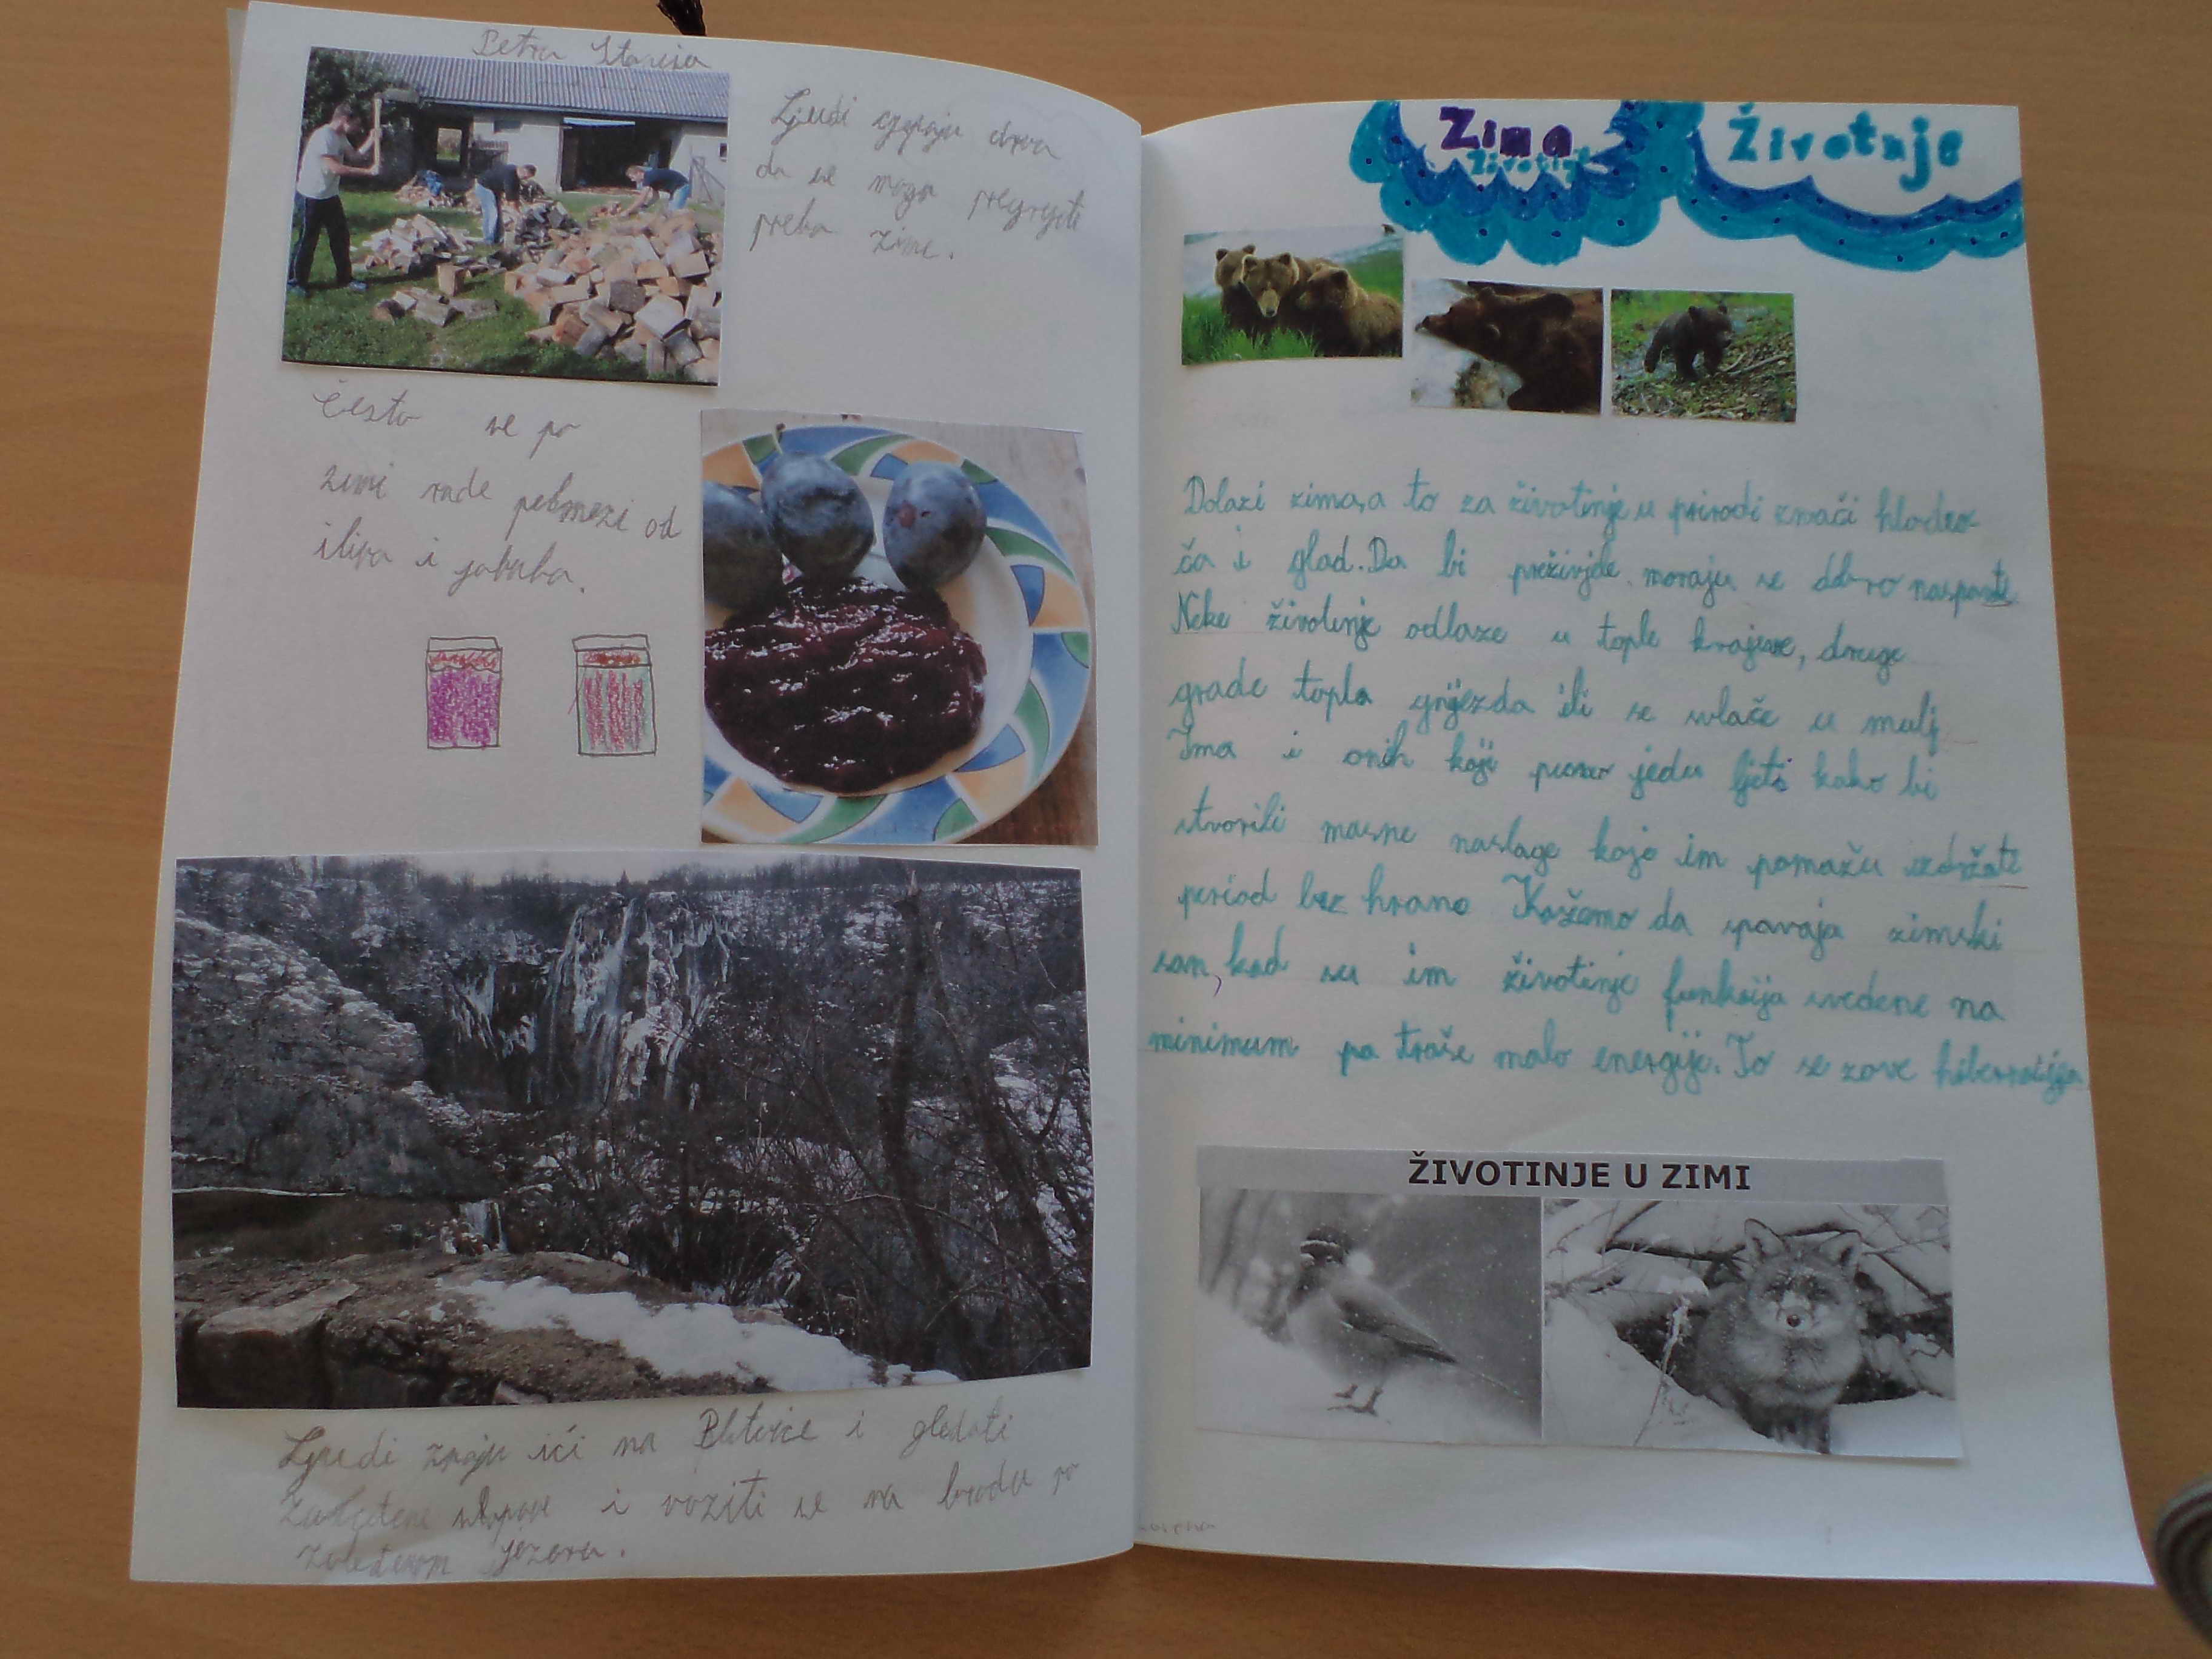 Petra
Ljudi cjepaju drva
da se mogu pregrijati
preko zime.
Često se po
zimi rade pekmezi od
šljiva i jabuka.
Ljudi znaju ići na Plitvice i gledati
zaleđene slapove i voziti se na brodu po
zaleđenom jezeru.
Zima
Životinje
Dolazi zima, a to za životinje u prirodi znači hladno-
ća i glad. Da bi preživjele moraju se dobro
Neke životinje odlaze u tople krajeve, druge
grade topla gnijezda ili se uvlače u mulj
Ima i onih koji puno jedu ljeti kako bi
stvorili masne naslage koje im pomažu izdržati
period bez hrane Kažemo da spavaju zimski
san, kad su im životinje funkcija svedene na
minimum pa traže malo energije. To se zove hibernacija
ŽIVOTINJE U ZIMI
Lorena